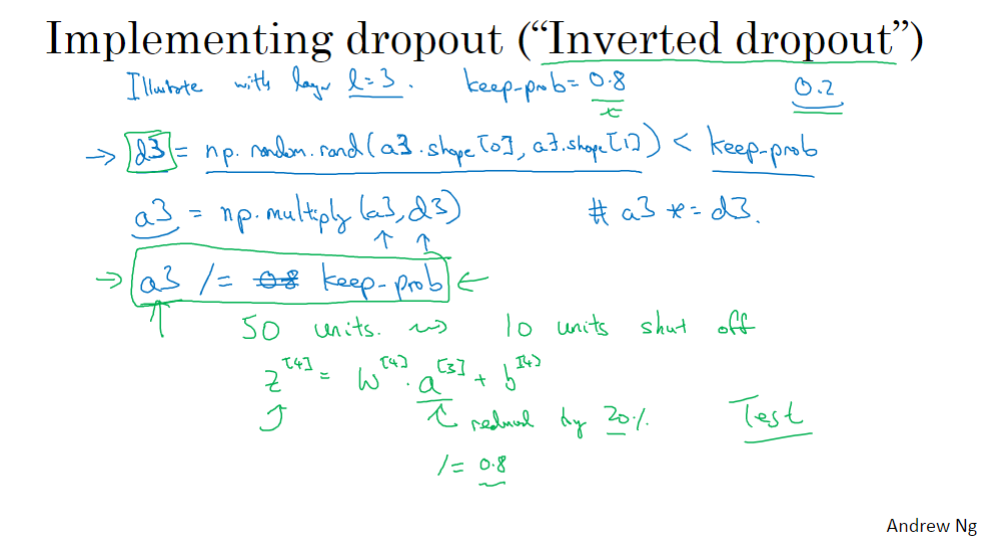 Implementing dropout (“Inverted dropout”)
Illustrate with layer l=3. keep-prob=0.8 0.2
→ d3 = np.random.rand(a3.shape[0], a3.shape[1]) < keep-prob
a3 = np.multiply(a3, d3) # a3 *= d3.
→ a3 /= 0.8 keep-prob ←
50 units. ⟿ 10 units shut off
z^[4] = W^[4] · a^[3] + b^[4]
reduced by 20%. Test
/= 0.8
Andrew Ng